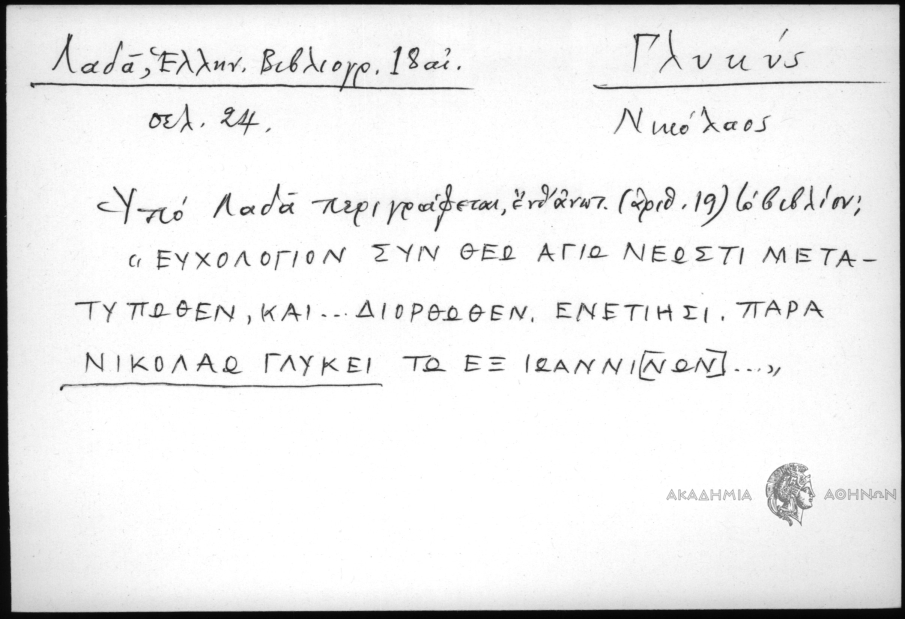 Λαδᾶ, Ἑλλην. Βιβλιογρ. 18 αἰ.
Γλυκύς
σελ. 24.
Νικόλαος
Ὑπό Λαδᾶ περιγράφεται, ἔνθ' ἀνωτ. (ἀριθ. 19) τό βιβλίον;
« ΕΥΧΟΛΟΓΙΟΝ ΣΥΝ ΘΕΩ ΑΓΙΩ ΝΕΩΣΤΙ ΜΕΤΑ–
ΤΥΠΩΘΕΝ, ΚΑΙ... ΔΙΟΡΘΩΘΕΝ. ΕΝΕΤΙΗΣΙ. ΠΑΡΑ
ΝΙΚΟΛΑΩ ΓΛΥΚΕΙ ΤΩ ΕΞ ΙΩΑΝΝΙ[ΝΩΝ]...»
ΑΚΑΔΗΜΙΑ ΑΘΗΝΩΝ